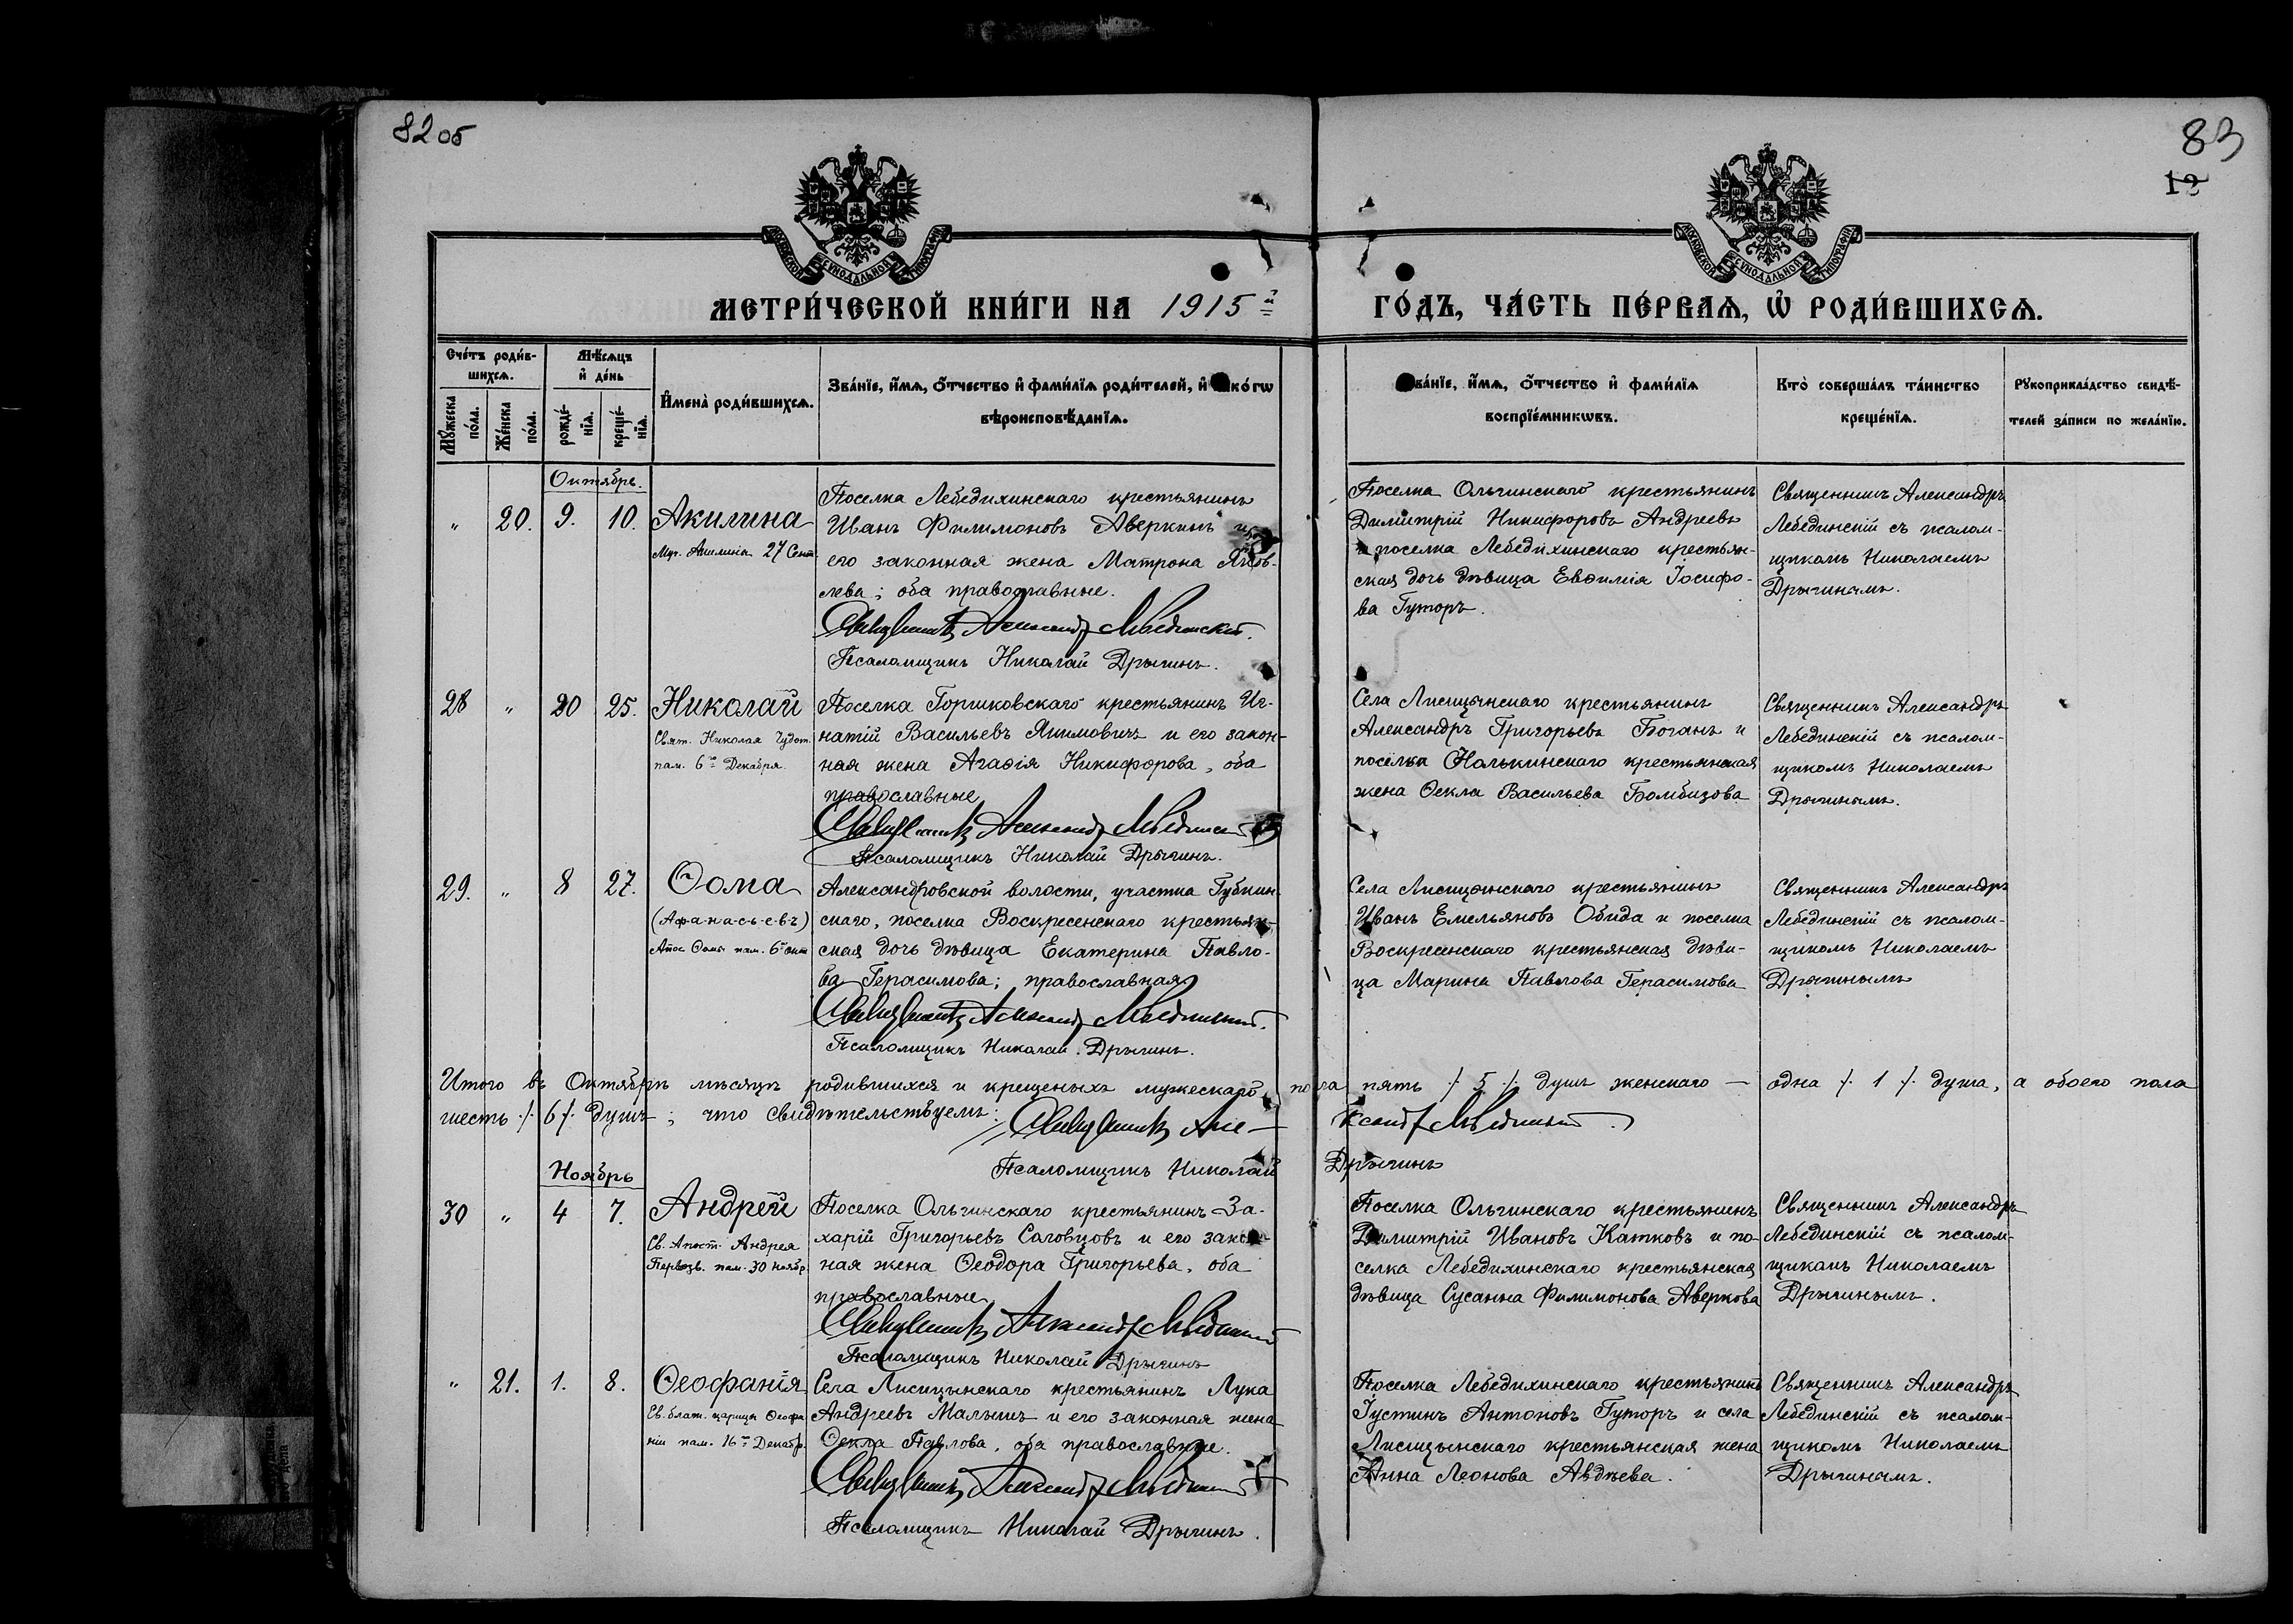 82 об
83
12
МОСКОВСКОЙ СѴНОДАЛЬНОЙ ТИПОГРАФІИ
МОСКОВСКОЙ СѴНОДАЛЬНОЙ ТИПОГРАФІИ
МЕТРИ́ЧЕСКОЙ КНИ́ГИ НА 1915й
ГО́ДЪ, ЧА́СТЬ ПЕ́РВАѦ, Ѡ҆ РОДИ́ВШИХСѦ.
Сче́тъ роди́в-
шихсѧ.
Мꙋ́жеска по́ла.
Же́нска по́ла.
Мѣ́сѧцъ
и҆ де́нь
рожде́-
нїѧ.
креще́-
нїѧ.
И҆мена̀ роди́вшихсѧ.
Зва́нїе, и҆́мѧ, ѻ҆́тчество и҆ фами́лїѧ роди́телей, и҆ како́гѡ
вѣроисповѣ́данїѧ.
Зва́нїе, и҆́мѧ, ѻ҆́тчество и҆ фами́лїѧ
воспрїе́мникѡвъ.
Кто̀ соверша́лъ та́инство
креще́нїѧ.
Рꙋкоприкла́дство свидѣ́-
телей за́писи по жела́нїю.
Октябрь.
" 20. 9. 10. Акилина
Муч. Акилины 27 Сент.
Поселка Лебедихинскаго крестьянинъ
Иванъ Филимоновъ Аверкинъ и
его законная жена Матрона Яков-
лева; оба православные.
Священникъ Александръ Лебединскій.
Псаломщикъ Николай Дрыгинъ.
Поселка Ольгинскаго крестьянинъ
Димитрій Никифоровъ Андреевъ
и поселка Лебедихинскаго крестьян-
ская дочь дѣвица Евѳимія Іосифо-
ва Гуторъ.
Священникъ Александръ
Лебединскій съ псалом-
щикомъ Николаемъ
Дрыгинымъ.
28 " 20 25. Николай
Свят. Николая Чудот.
пам. 6го Декабря.
Поселка Горшковскаго крестьянинъ Иг-
натій Васильевъ Якимовичъ и его закон-
ная жена Агаѳія Никифорова, оба
православные
Священникъ Александръ Лебединскій
Псаломщикъ Николай Дрыгинъ.
Села Лисицынскаго крестьянинъ
Александръ Григорьевъ Боганъ и
поселка крестьянская
жена Ѳекла Васильева
Священникъ Александръ
Лебединскій съ псалом-
щикомъ Николаемъ
Дрыгинымъ.
29. " 8 27. Ѳома
(А-ф-а-н-а-с-ь-е-в-ъ)
Апос. Ѳомы пам. 6го окт
Александровской волости, участка Губкин-
скаго, поселка Воскресенскаго крестьян-
ская дочь дѣвица Екатерина Павло-
ва Герасимова; православная
Священникъ Александръ Лебединскій.
Псаломщикъ Николай Дрыгинъ.
Села Лисицынскаго крестьянинъ
Иванъ Емельяновъ Обида и поселка
Воскресенскаго крестьянская дѣви-
ца Марина Павлова Герасимова
Священникъ Александръ
Лебединскій съ псалом-
щикомъ Николаемъ
Дрыгинымъ
Итого въ Октябрѣ мѣсяцѣ родившихся и крещеныхъ мужескаго пола пять ./. 5 ./. душъ женскаго — одна ./. 1 ./. душа, а обоего пола
шесть ./. 6 ./. душъ; что свидѣтельствуемъ: Священникъ Але-ксандръ Лебединскій.
Псаломщикъ Николай Дрыгинъ
Ноябрь
30 " 4 7. Андрей
Св. Апост. Андрея
Первозв. пам. 30 ноябр.
Поселка Ольгинскаго крестьянинъ За-
харій Григорьевъ Саловцовъ и его закон-
ная жена Ѳеодора Григорьева, оба
православные
Священникъ Александръ Лебединскій
Псаломщикъ Николай Дрыгинъ
Поселка Ольгинскаго крестьянинъ
Димитрій Ивановъ Катковъ и по-
селка Лебедихинскаго крестьянская
дѣвица Сусанна Филимонова Аверкова
Священникъ Александръ
Лебединскій съ псалом-
щикомъ Николаемъ
Дрыгинымъ.
" 21. 1. 8. Ѳеофанія
Св. благ. царицы Ѳеофа
ніи пам. 16го Декабр.
Села Лисицынскаго крестьянинъ Лука
Андреевъ Малышъ и его законная жена
Ѳекла Павлова, оба православные.
Священникъ Александръ Лебединскій
Псаломщикъ Николай Дрыгинъ.
Поселка Лебедихинскаго крестьянинъ
Іустинъ Антоновъ Гуторъ и села
Лисицынскаго крестьянская жена
Анна Леонова Авдѣева.
Священникъ Александръ
Лебединскій съ псалом-
щикомъ Николаемъ
Дрыгинымъ.